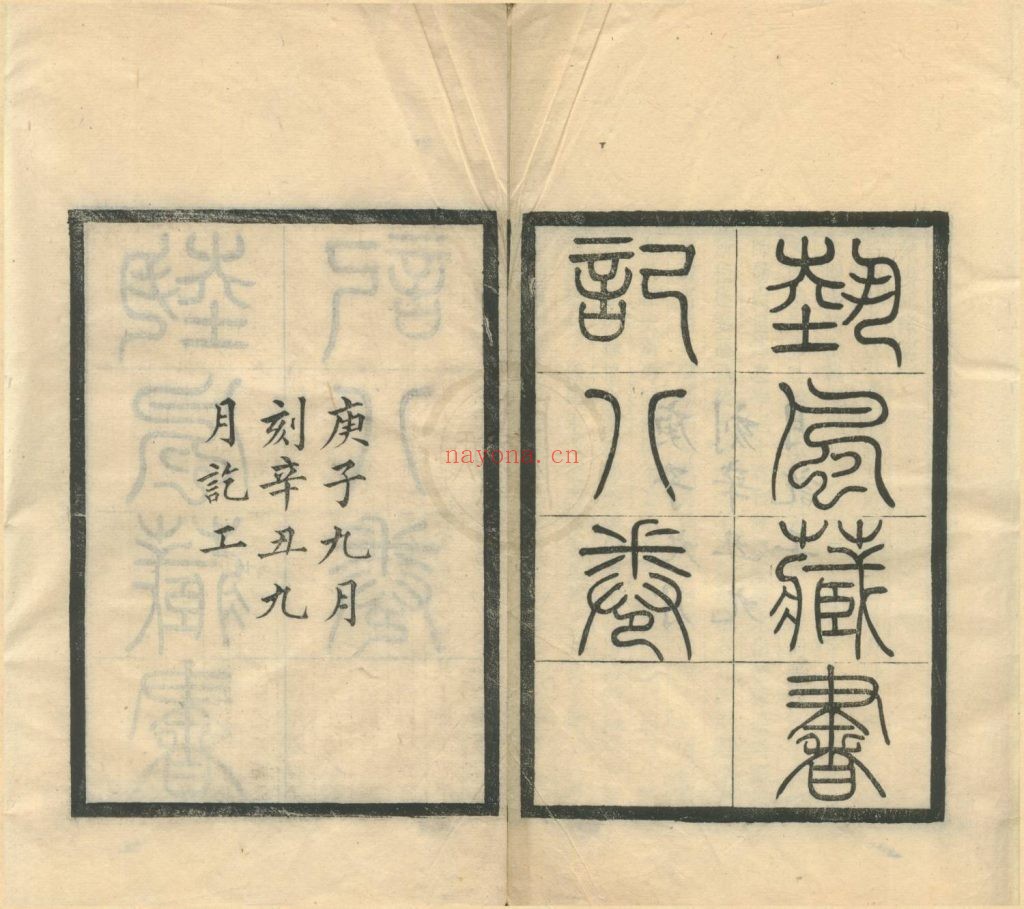 埶風藏書
記八卷
庚子九月
刻辛丑九
月訖工
nayona.cn